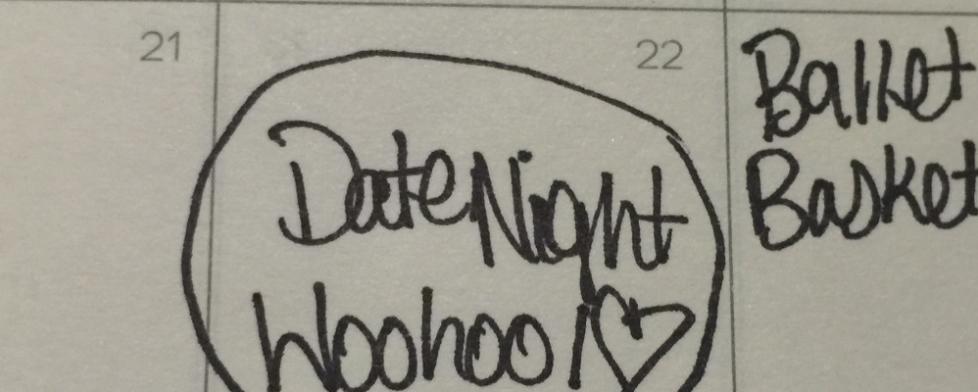 21
22
Date Night
Woohoo!
Ballet
Basket